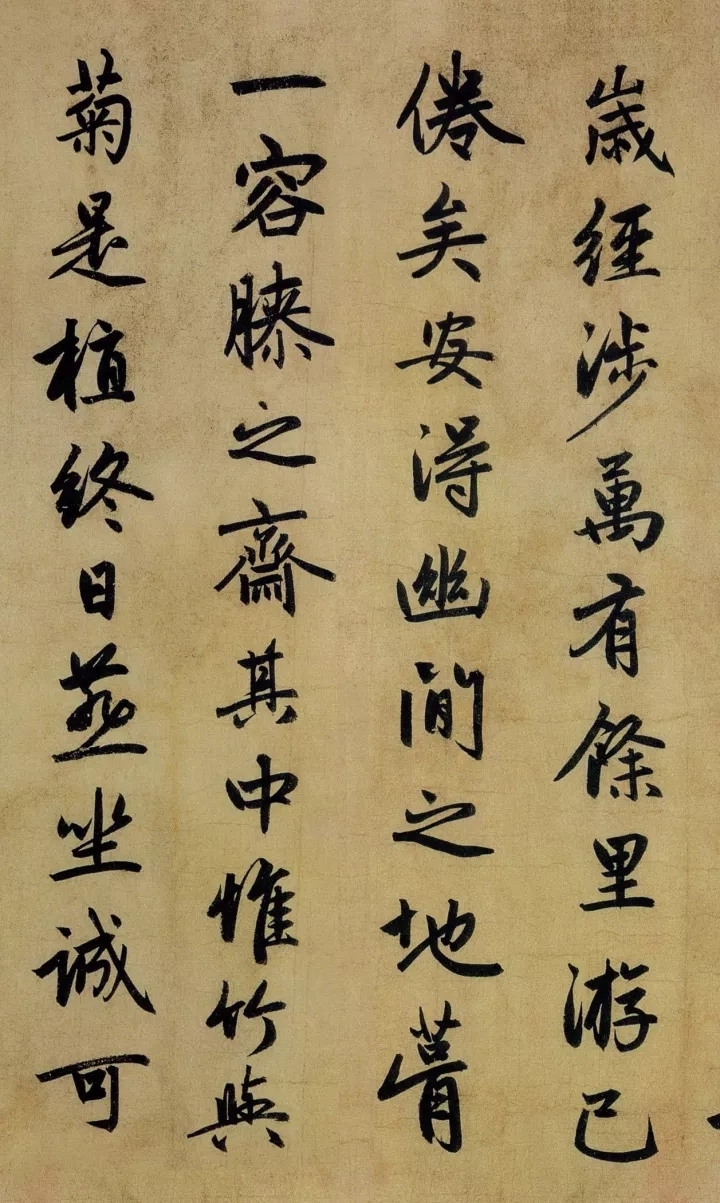 歲經涉萬有餘里游已
倦矣安得幽閒之地葺
一容膝之齋其中惟竹與
菊是植終日燕坐誠可